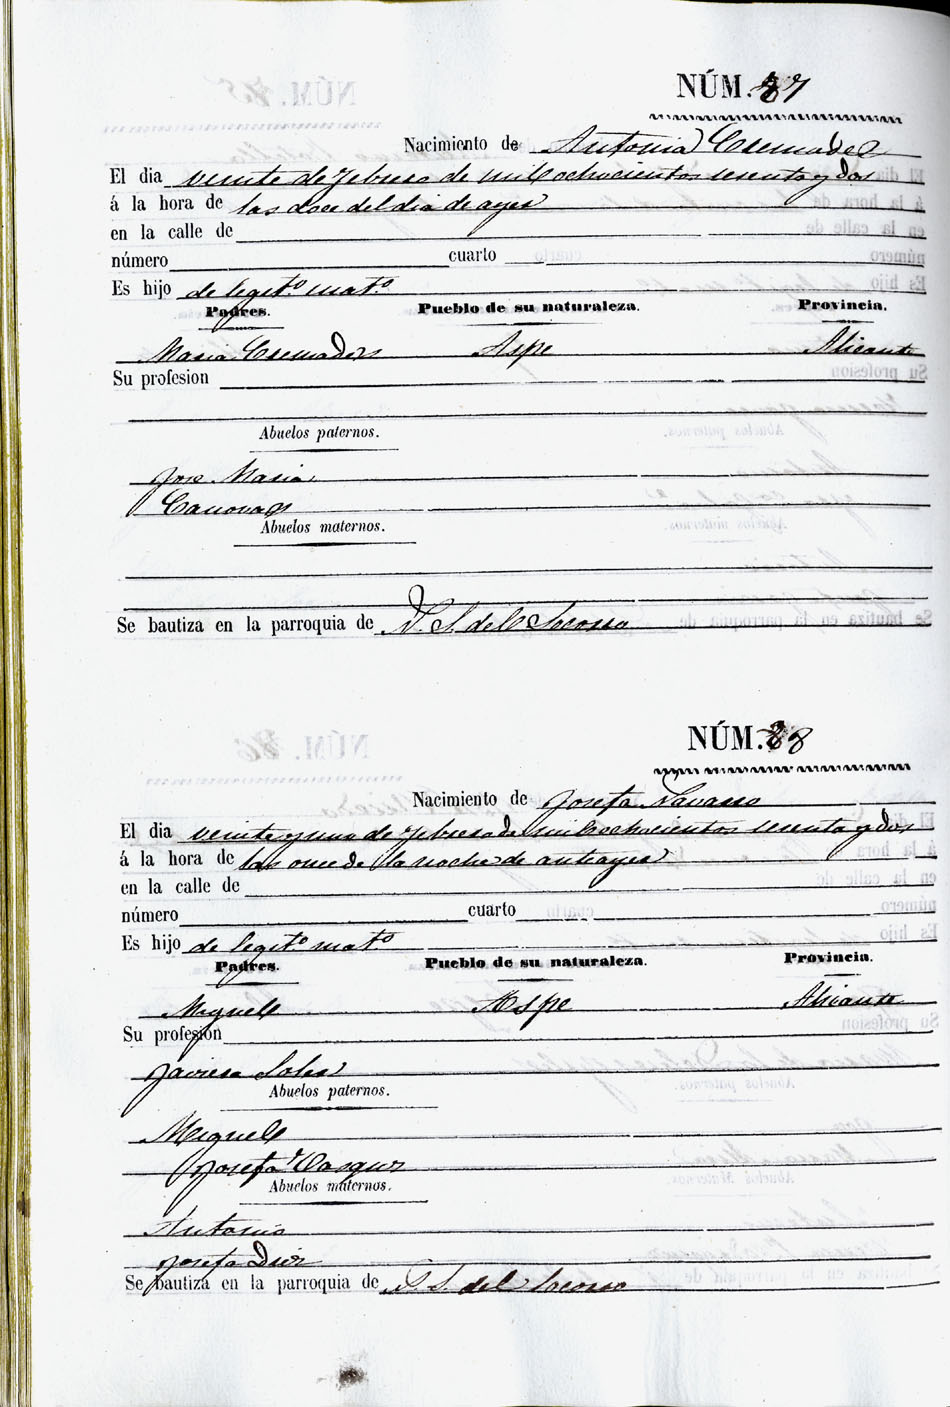 NÚM. 87
Nacimiento de Antonia Cremades
El dia veinte de febrero de mil ochocientos sesenta y dos
á la hora de las doce del dia de ayer
en la calle de
número cuarto
Es hijo de legit.º mat.º
Padres. Pueblo de su naturaleza. Provincia.
Maria Cremades Aspe Alicante
Su profesion
Abuelos paternos.
Jose Maria
Canovas
Abuelos maternos.
Se bautiza en la parroquia de N. S. del Socorro
NÚM. 88
Nacimiento de Josefa Navarro
El dia veinte y uno de febrero de mil ochocientos sesenta y dos
á la hora de las once de la noche de anteayer
en la calle de
número cuarto
Es hijo de legit.º mat.º
Padres. Pueblo de su naturaleza. Provincia.
Miguel Aspe Alicante
Su profesion
Javiera Soler
Abuelos paternos.
Miguel
Josefa Vasquez
Abuelos maternos.
Antonio
Josefa Diez
Se bautiza en la parroquia de N. S. del Socorro